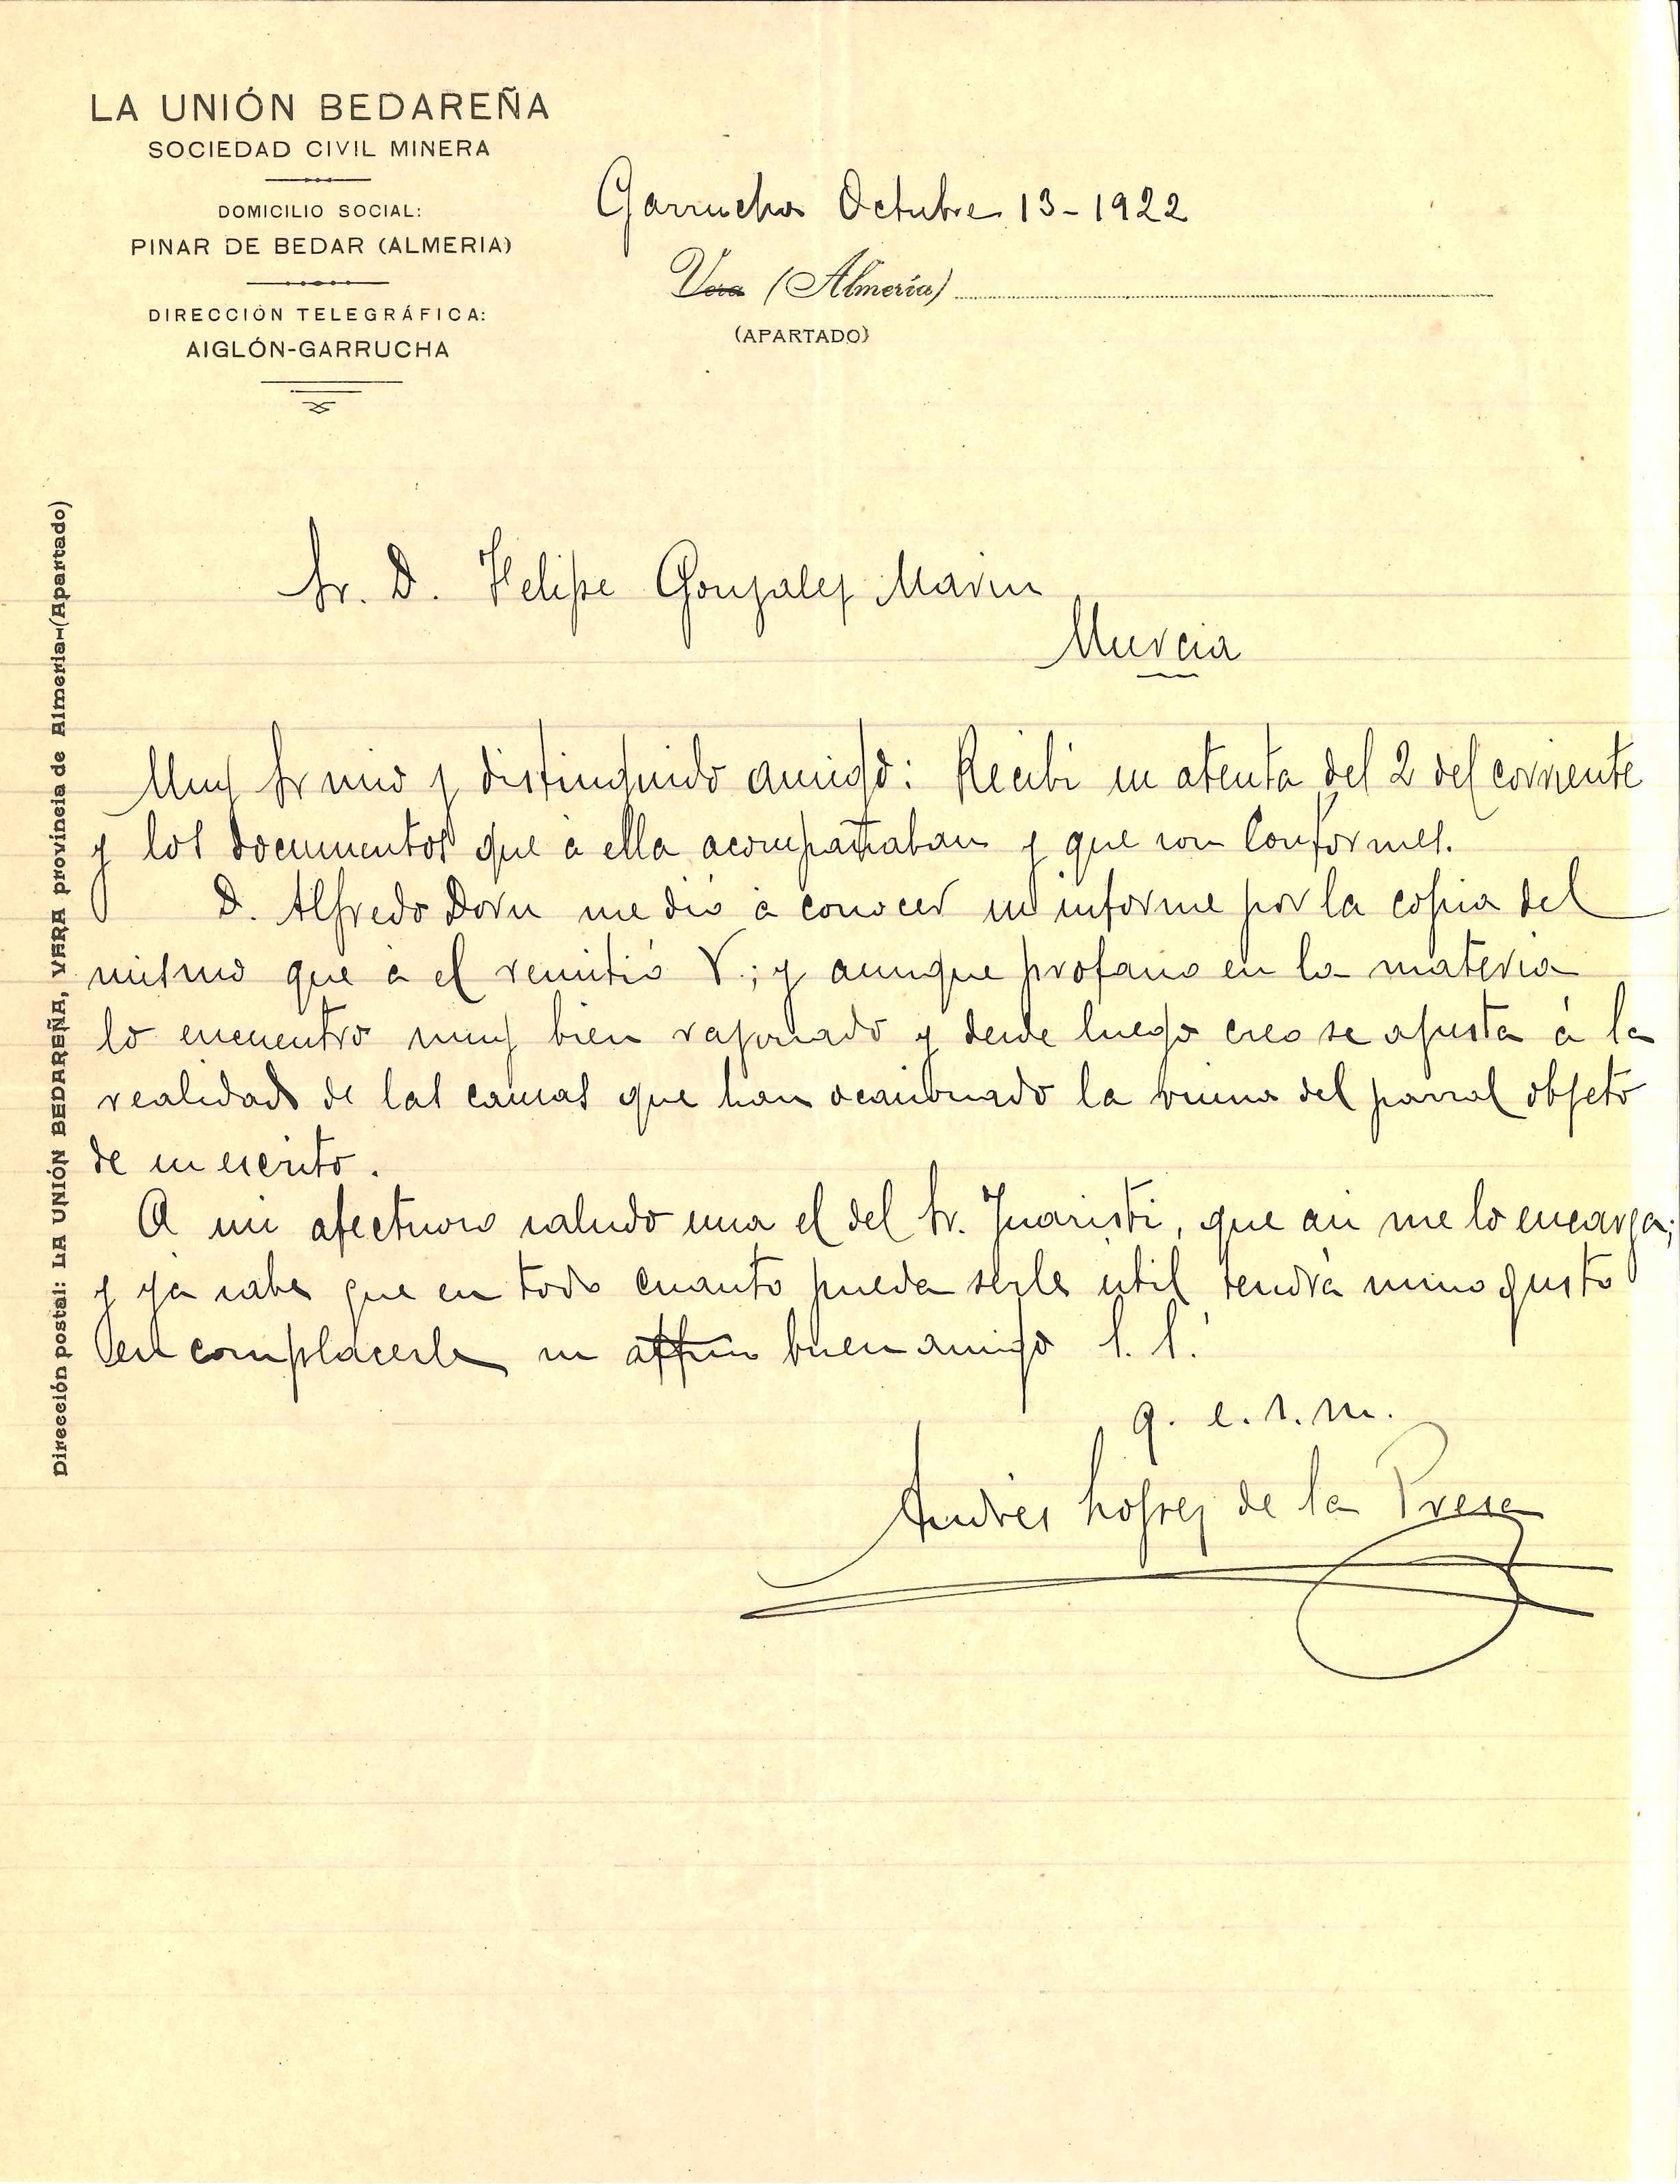 LA UNIÓN BEDAREÑA
SOCIEDAD CIVIL MINERA
DOMICILIO SOCIAL:
PINAR DE BEDAR (ALMERIA)
DIRECCIÓN TELEGRÁFICA:
AIGLÓN-GARRUCHA
Garrucha Octubre 13-1922
Vera (Almería)
(APARTADO)
Dirección postal: LA UNIÓN BEDAREÑA, VERA provincia de Almeria-(Apartado)
Sr. D. Felipe Gonzalez Marin
Murcia
Muy Sr mio y distinguido amigo: Recibi su atenta del 2 del corriente
y los documentos que á ella acompañaban y que son conformes.
D. Alfredo Dorn me dió á conocer su informe por la copia del
mismo que á el remitió V.; y aunque profano en la materia
lo encuentro muy bien razonado y desde luego creo se ajusta á la
realidad de las causas que han ocasionado la ruina del parral objeto
de su escrito.
A mi afectuoso saludo una el del Sr. Juaristi, que asi me lo encarga;
y ya sabe que en todo cuanto pueda serle útil tendrá sumo gusto
en complacerle su buen amigo S. S.
q. e. s. m.
Andrés López de la Presa